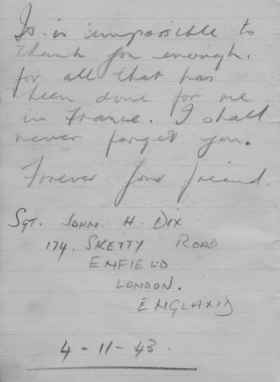 It is impossible to
thank you enough.
for all that has
been done for me
in France. I shall
never forget you.
Forever your friend
SGT. JOHN H. DIX
174. SKETTY ROAD
ENFIELD
LONDON.
ENGLAND
4-11-43.